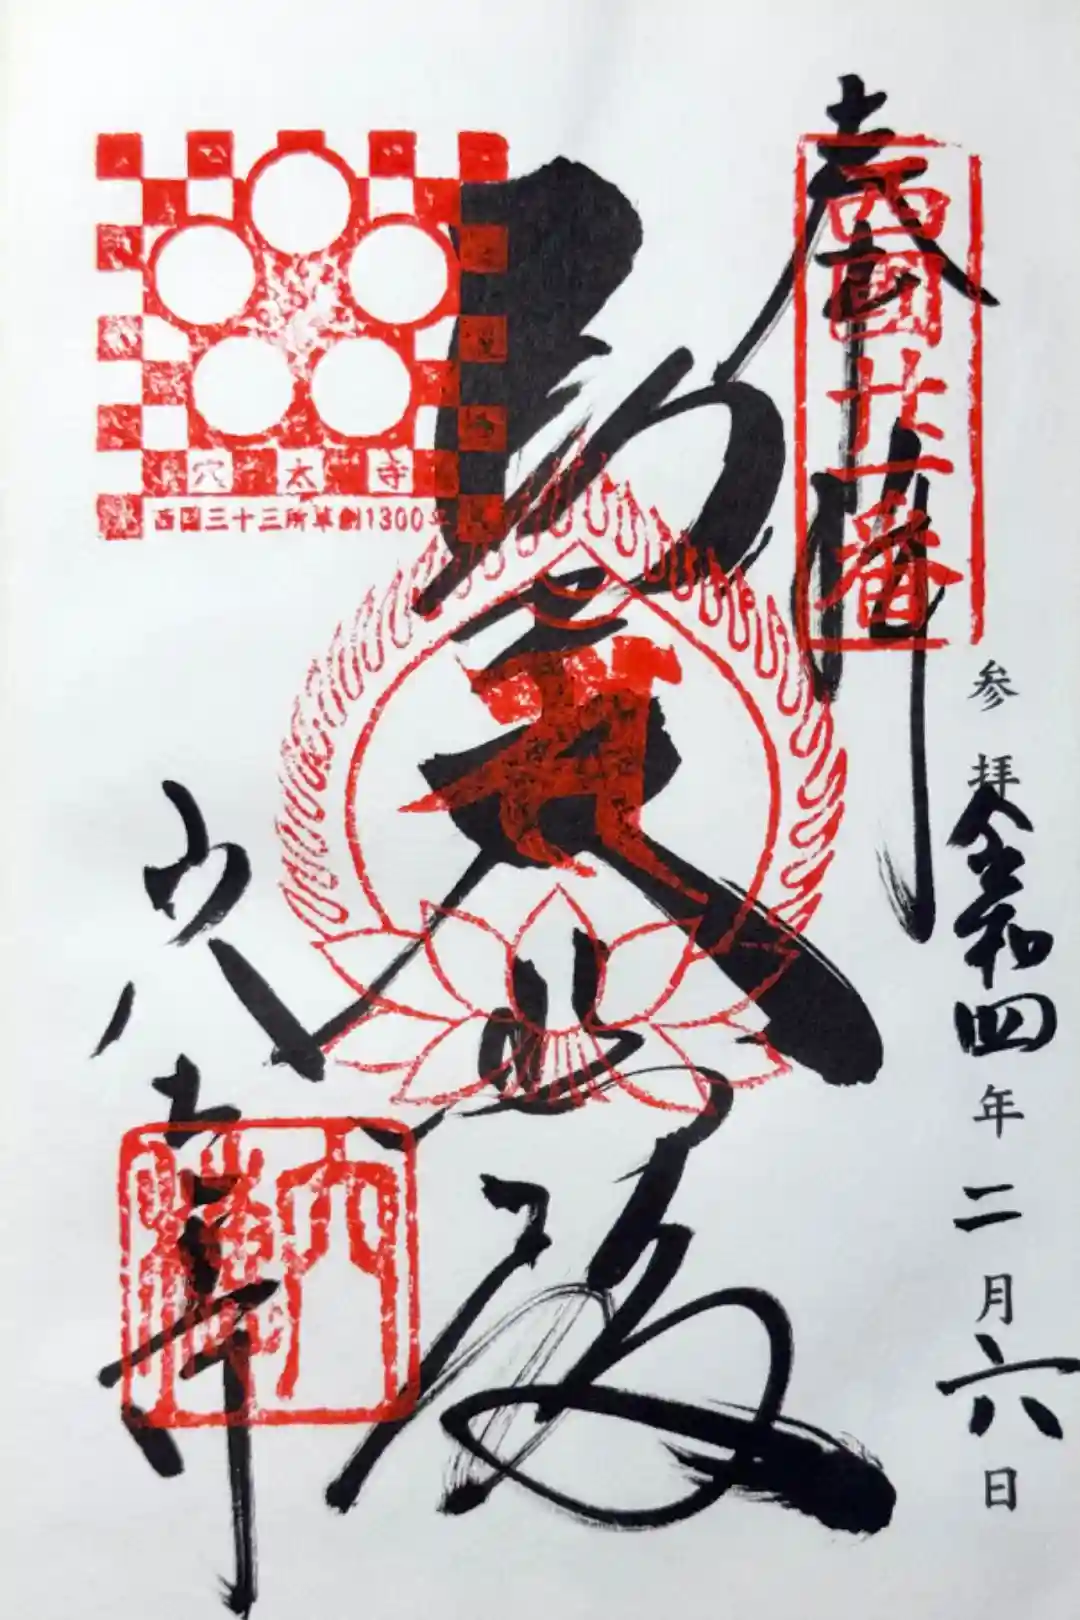 奉拝
西国廿一番
参拝令和四年二月六日
聖大悲殿
穴太寺
穴太寺
西国三十三所草創1300年